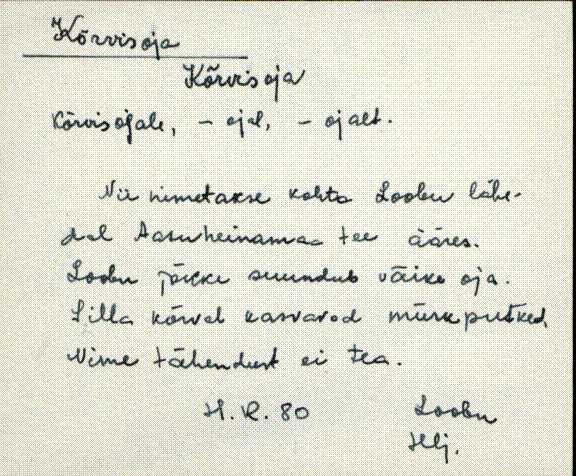 Kõrvisoja
Kõrvisoja
Kõrvisojale, - ojal, - ojalt.
Nii nimetakse kohta Loobu lähe-
dal Aasuheinamaa tee ääres.
Loobu jõkke suundub väike oja.
Silla kõrval kasvavad mürkputked.
Nime tähendust ei tea.
H. R. 80 Loobu
Hlj.